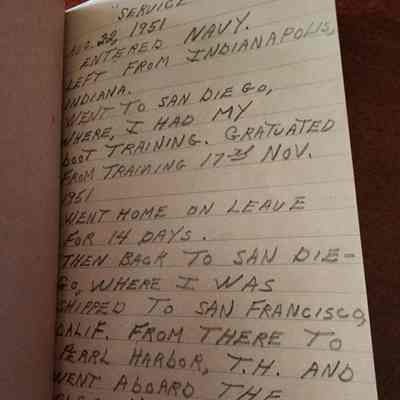 "SERVICE
AUG. 28, 1951
ENTERED NAVY.
LEFT FROM INDIANAPOLIS,
INDIANA.
WENT TO SAN DIEGO,
WHERE, I HAD MY
BOOT TRAINING. GRATUATED
FROM TRAINING 17 NOV.
1951
WENT HOME ON LEAVE
FOR 14 DAYS.
THEN BACK TO SAN DIE-
GO, WHERE I WAS
SHIPPED TO SAN FRANCISCO,
CALIF. FROM THERE TO
PEARL HARBOR, T.H. AND
WENT ABOARD THE